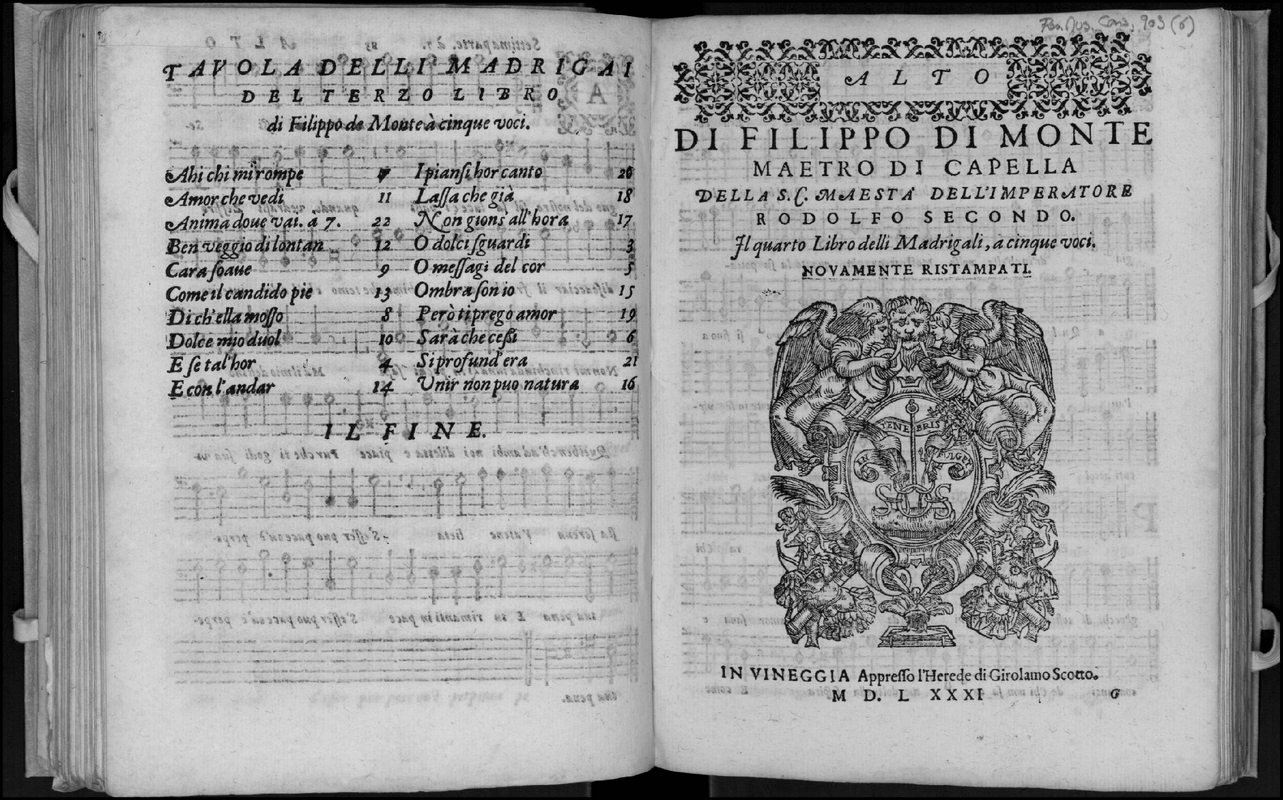 TAVOLA DELLI MADRIGAI
DEL TERZO LIBRO
di Filippo de Monte à cinque voci.
Ahi chi mi rompe 7
Amor che vedi 11
Anima doue vai. a 7. 22
Ben veggio di lontan 12
Cara soaue 9
Come il candido pie 13
Di ch'ella mosso 8
Dolce mio duol 10
E se tal'hor 4
E con l'andar 14
I piansi, hor canto 20
Lassa che già 18
Non gions'all'hora 17
O dolci sguardi 3
O messagi del cor 5
Ombra son io 15
Però ti prego amor 19
Sarà che cessi 6
Si profund'era 21
Unir non puo natura 16
IL FINE.
903 (6)
ALTO
DI FILIPPO DI MONTE
MAETRO DI CAPELLA
DELLA S. C. MAESTA' DELL'IMPERATORE
RODOLFO SECONDO.
Il quarto Libro delli Madrigali, a cinque voci.
NOVAMENTE RISTAMPATI.
TENEBRIS
IN FULGET
SOS
IN VINEGGIA Appresso l'Herede di Girolamo Scotto.
M D. L XXXI
G